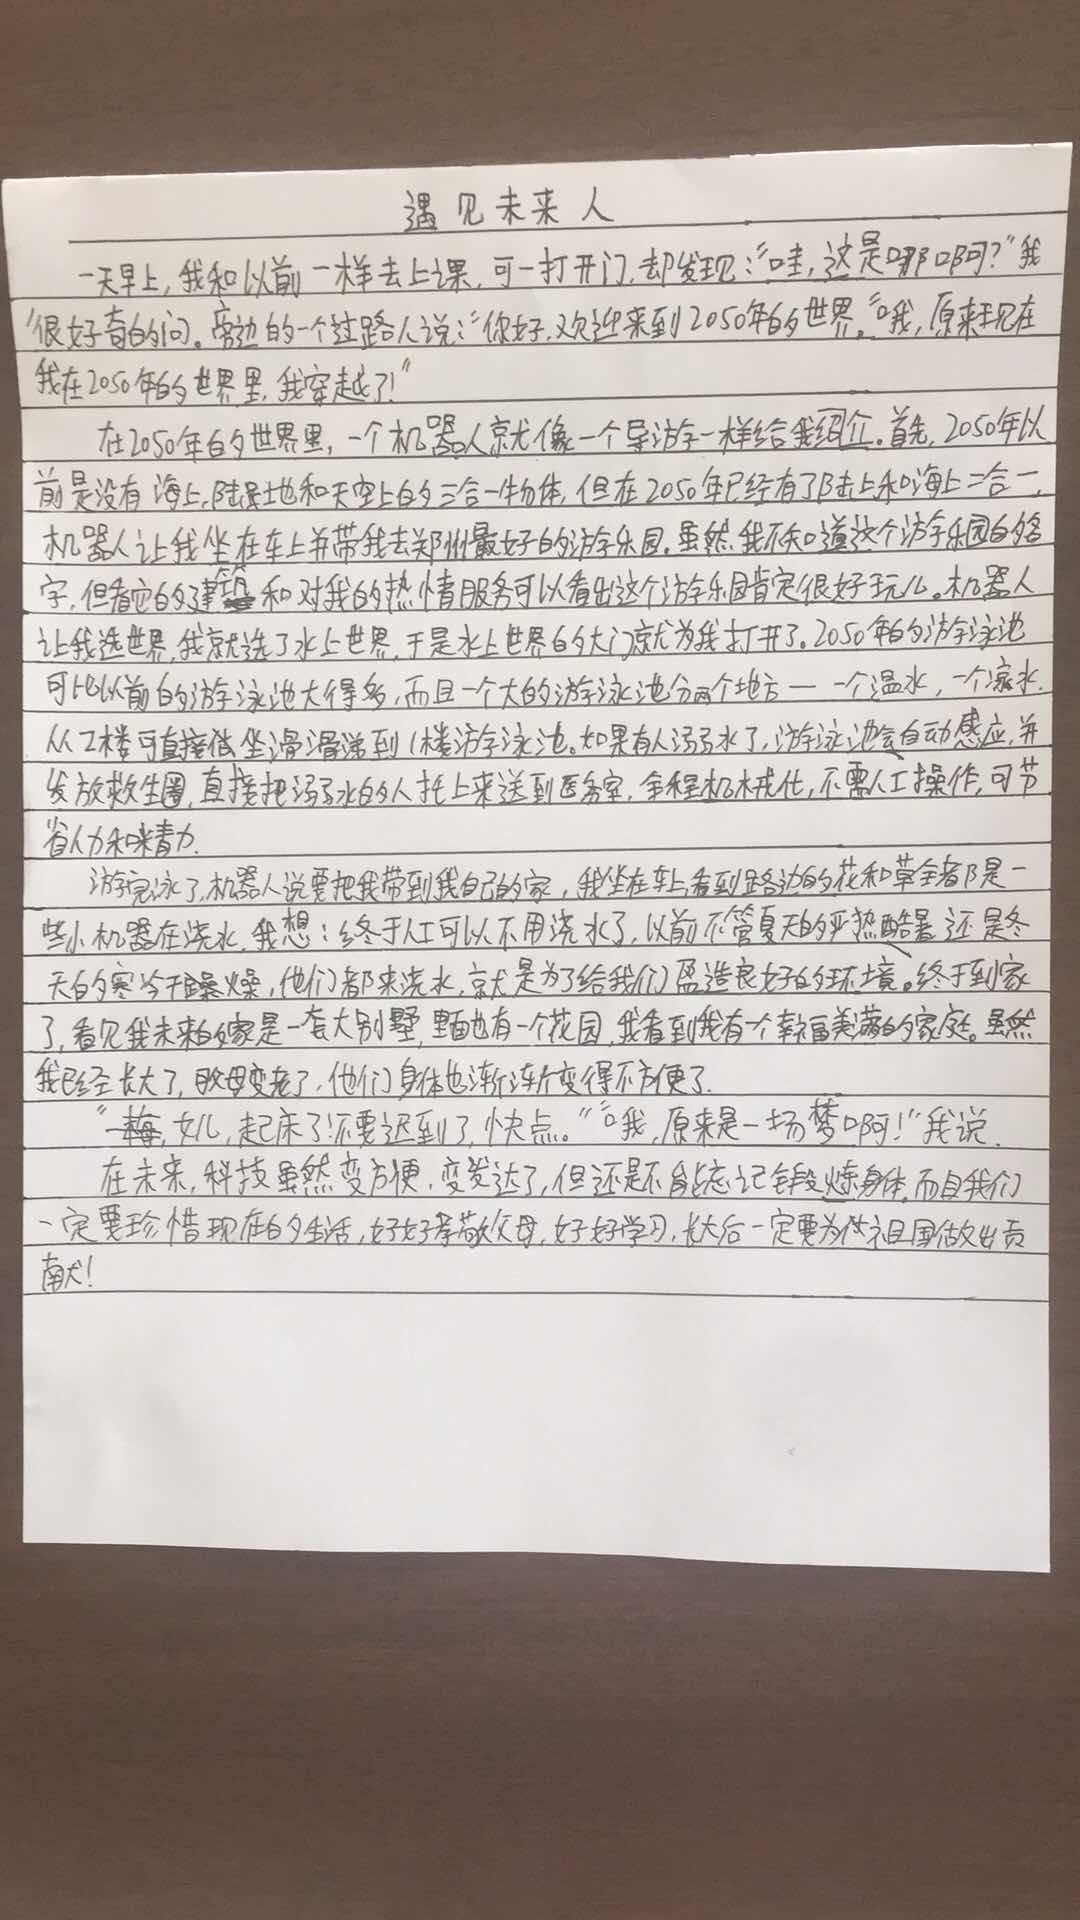 遇见未来人
一天早上，我和以前一样去上课，可一打开门，却发现：“哇，这是哪啊？”我
很好奇的问。旁边的一个过路人说：“你好，欢迎来到2050年的世界。”“哦，原来现在
我在2050年的世界里，我穿越了！”
在2050年的世界里，一个机器人就像一个导游一样给我绍介。首先，2050年以
前是没有海上、陆地和天空上的三合一物体，但在2050年已经有了陆上和海上二合一，
机器人让我坐在车上并带我去郑州最好的游乐园。虽然我不知道这个游乐园的名
字，但看它的建筑和对我的热情服务可以看出这个游乐园肯定很好玩儿。机器人
让我选世界，我就选了水上世界，于是水上世界的大门就为我打开了。2050年的游泳池
可比以前的游泳池大得多，而且一个大的游泳池分两个地方——一个温水，一个凉水.
从2楼可直接坐滑滑梯到1楼游泳池。如果有人溺水了，游泳池会自动感应，并
发放救生圈，直接把溺水的人托上来送到医务室，全程机械化，不需人工操作，可节
省人力和精力.
游完泳了，机器人说要把我带到我自己的家，我坐在车上看到路边的花和草全都是一
些小机器在浇水，我想：终于人工可以不用浇水了，以前不管夏天的炎热酷暑还是冬
天的寒冷干燥，他们都来浇水，就是为了给我们营造良好的环境。终于到家
了，看见我未来的家是一套大别墅，里面也有一个花园，我看到我有一个幸福美满的家庭。虽然
我已经长大了，父母变老了，他们身体也渐渐变得不方便了.
“女儿，起床了！不要迟到了，快点。”“哦，原来是一场梦啊！”我说.
在未来，科技虽然变方便，变发达了，但还是不能忘记锻炼身体，而且我们
一定要珍惜现在的生活，好好孝敬父母，好好学习，长大后一定要为祖国做出贡
献！